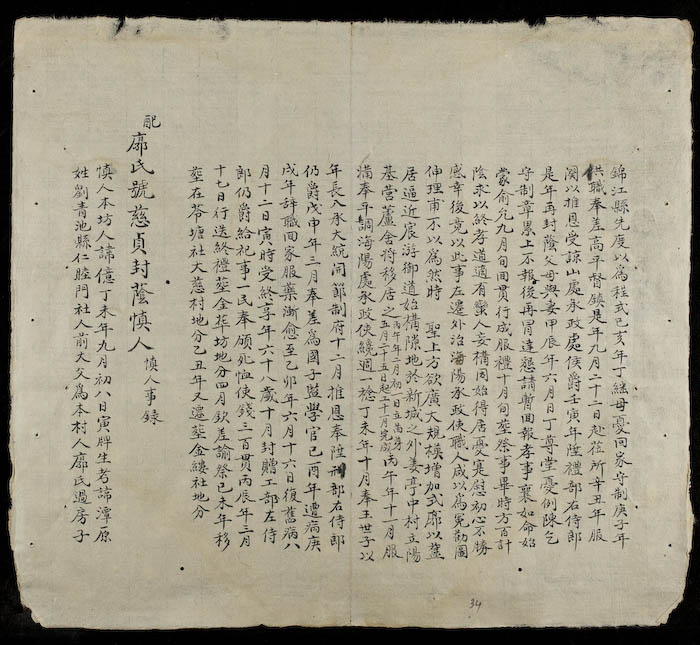 錦江縣先度以爲程式己亥年丁継母憂回家守制庚子年
供職奉差高平督鎮是年九月二十二日起莅所辛丑年服
闋以推恩受諒山處承政處侯爵壬寅年陞禮部右侍郎
是年再封蔭父母與妾甲辰年六月日丁尊堂憂例陳乞
守制章累上不報後再冒違懇請暫回報孝事襄如命始
蒙俞允九月旬回貫行成服禮十月旬塟祭事畢時方百計
陰求以終孝道適有蠻人妄構同始得居憂寔慰初心不勝
感幸後竟以此事左遷外治海陽承政使職人咸以爲冤勸圖
伸理甫不以爲然時 聖上方欲廣大規模增加式廓以盖
居逼近宸游御道始構隙地於新城之外婁亭中村立陽
基营蘆舍将移居之丙午年二月初一日立芮房五月二十五日起工十一月完成丙午年十一月服
满奉平調海陽處承政使繞週一稔丁未年十月奉王世子以
年長入承大統开節制府十二月推恩奉陞刑部右侍郎
仍爵戊申年三月奉差爲國子監學官己酉年遭病庚
戌年辞職回家服藥漸愈至乙卯年六月十六日復舊病八
月十二日寅時受終享年六十八歲十月封贈工部左侍
郎仍爵給祀事一民奉頒死恤使錢三百貫丙辰年三月
十七日行送終禮塟金茶坊地分四月欽差諭祭己未年移
塟在苓塘社大慈村地分乙丑年又遷塟金縷社地分
配
廓氏號慈貞封蔭慎人 慎人事錄
慎人本坊人諱億丁未年九月初八日寅牌生考諱潭原
姓劉青池縣仁睦門社人前大父爲本村人廓氏過房子
34